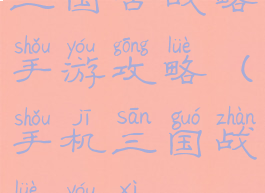 三国志战略
shǒu yóu gōng lüè
手游攻略（
shǒu jī sān guó zhàn
手机三国战
lüè yóu xì